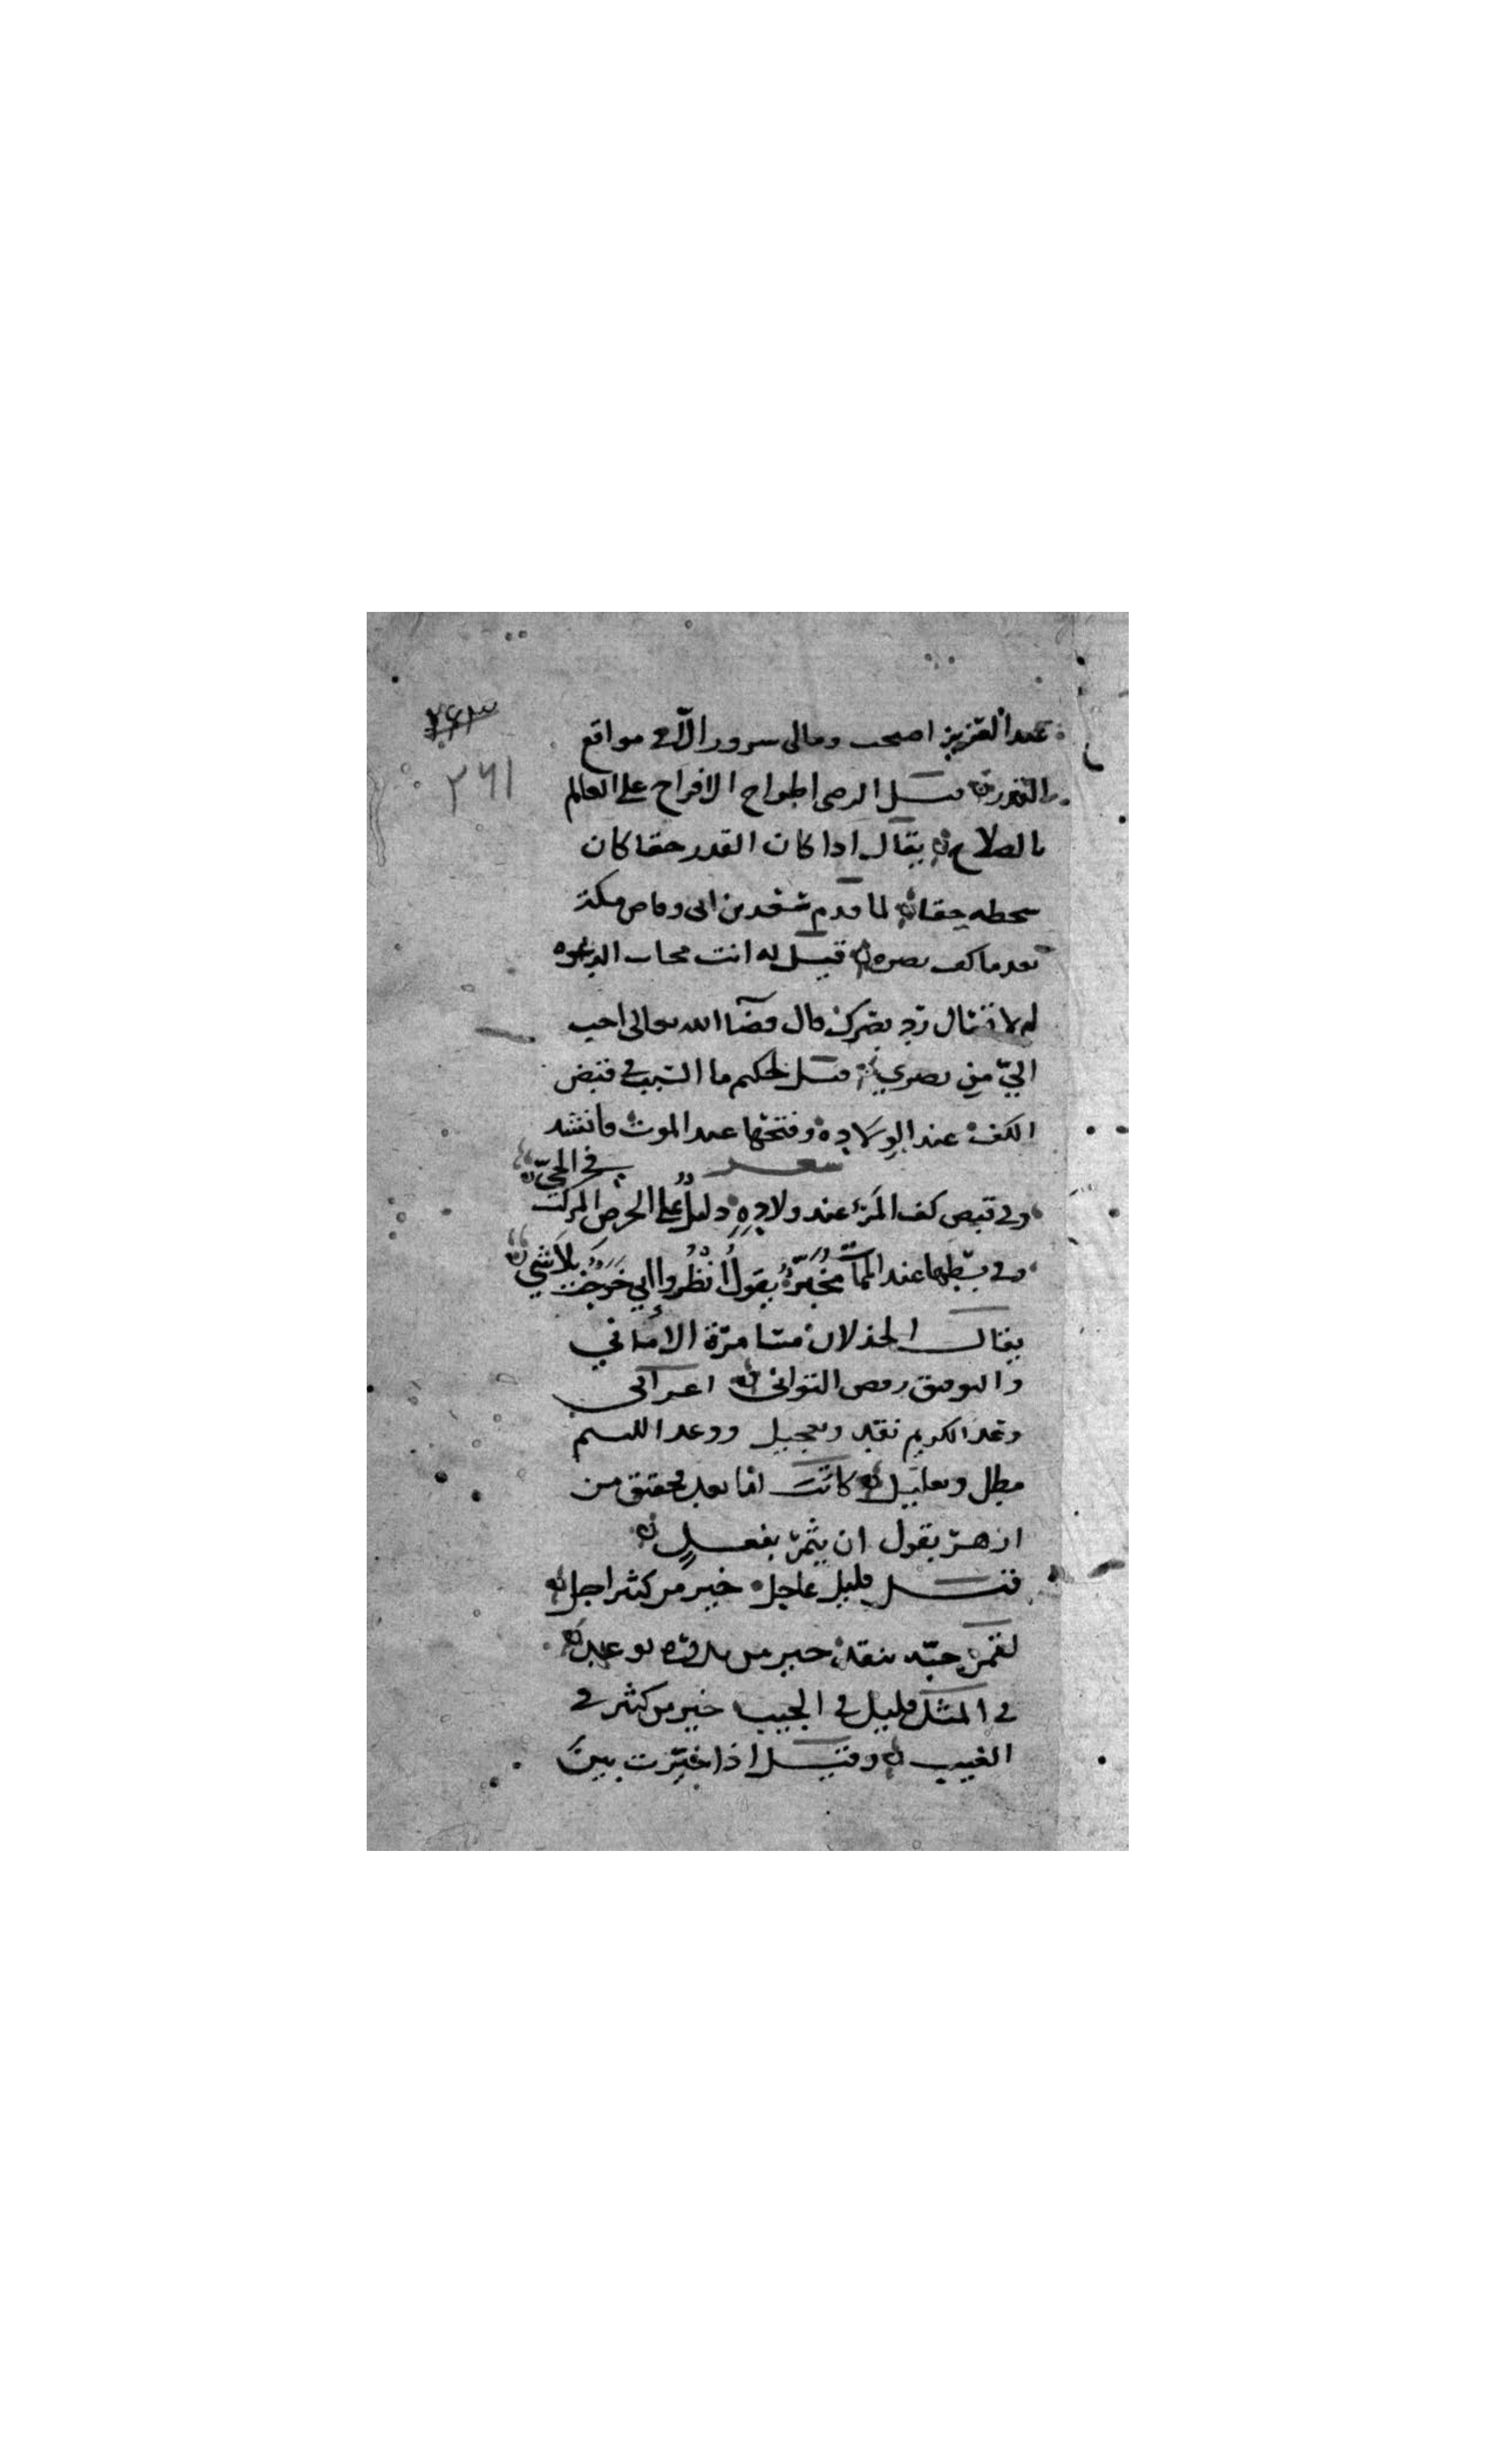 عبد العزيز اصبحت ومالى سرور الّا فى مواقع
القدر قيل الرضى اطراح الاقراح على العالم
بالصلاح يقال اذا كان القدر حقا كان
سخطه حمقا لما قدم سعد بن ابى وقاص مكة
بعد ما كف بصره قيل له انت مجاب الدعوه
لم لا تسال ردّ بصرك قال قضآ الله تعالى احب
اليّ من بصري قيل لحكيم ما السّبب فى قبض
الكف عند الولاده وفتحها عند الموت فانشد
شعر
وفى قبص كف المرء عند ولادهِ دليل على الحرص المركب في الحيّ
وفى بسّطها عند الممات مخبّرٌ يقول انظروا إني خرجت بلا شيّ
يقال الخذلان مسامرة الاماني
والتوفيق رفض التوانى اعرابي
وعد الكريم نقد وتعجيل ووعد اللئيم
مطل وتعليل كاتب امّا بعد فحقيق من
ازهرّ بقول ان يثمرّ بفعل
قيل قليل عاجل خير من كثير اجل
لقمن حبّه بنقد خير من بدره بوعد
فى المثل قليل فى الجيب خير من كثير فى
الغيب وقيل اذا خيّرت بين
٢٦١